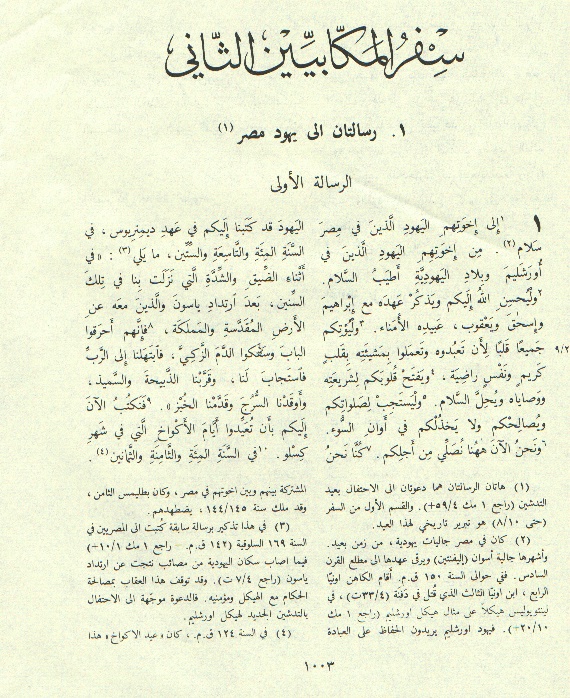 سِفْرُ المَكّابيِّين الثَّاني
١. رسالتان الى يهود مصر (١)
الرسالة الأولى
١ ١إلى إخوَتِهم اليَهودِ الَّذينَ في مِصرَ
سَلام (٢). مِن إخوَتِهِم اليَهودِ الَّذينَ في
أُورَشَليمَ وبِلادِ اليَهودِيَّةِ أَطيَبُ السَّلام.
٢ولْيُحسِنِ اللهُ إلَيكم ويَذكُرْ عَهدَه مع إبْراهيمَ
وإسحقَ ويَعْقوب، عَبيدِه الأُمَناء. ٣ولْيُؤتِكم
جَميعًا قَلبًا لِأَن تَعبُدوه وتَعمَلوا بِمَشيئَتِه بِقَلبٍ
كَريمٍ ونَفْسٍ راضِيَة، ٤ويَفتَحْ قُلوبَكم لِشَريعَتِه
ووَصاياه ويُحِلَّ السَّلام. ٥ولْيَستَجِبْ لِصَلَواتِكم
ويُصالِحْكم ولا يَخذُلْكم في أَوانِ السُّوء.
٦ونَحنُ الآنَ هٰهُنا نُصَلِّي مِن أَجلِكم. ٧كُنَّا نَحنُ
٩/٢
اليَهودَ قد كَتَبنا إلَيكم في عَهدِ ديمِتريوس، في
السَّنَةِ المِئَةِ والتَّاسِعَةِ والسِّتِّين، ما يَلي (٣) : «في
أَثْناءِ الضِّيقِ والشِّدَّةِ الَّتي نَزَلَت بِنا في تِلكَ
السِّنين، بَعدَ ارتِدادِ ياسونَ والَّذينَ معَه عنِ
الأَرضِ المُقَدَّسَةِ والمَملَكَة، ٨فإنَّهم أَحرَقوا
البابَ وسَفَكوا الدَّمَ الزَّكِيّ، فَابتَهَلنا إلى الرَّبِّ
فَاستَجابَ لَنا، وقَرَّبْنا الذَّبيحَةَ والسَّميذ،
وأَوقَدْنا السُّرُجَ وقَدَّمْنا الخُبْز». ٩فنَكتُبُ الآنَ
إلَيكم بِأَن تُعَيِّدوا أَيَّامَ الأَكْواخِ الَّتي في شَهرِ
كِسْلو. ١٠في السَّنَةِ المِئَةِ والثَّامِنَةِ والثَّمانين (٤).
(١) هاتان الرسالتان هما دعوتان الى الاحتفال بعيد
التدشين (راجع ١ مك ٥٩/٤+) والقسم الأول من السفر
(حتى ٨/١٠) هو تبرير تاريخي لهذا العيد.
(٢) كان في مصر جاليات يهودية، من زمن بعيد.
وأشهرها جالية أسوان (إليفنتين) ويرقى عهدها الى مطلع القرن
السادس. ففي حوالى السنة ١٥٠ ق.م. أقام الكاهن اونيّا
الرابع، ابن اونيّا الثالث الذي قُتل في دَفنَة (٣٣/٤ت)، في
لينتوبوليس هيكلًا على مثال هيكل اورشليم (راجع ١ مك
٢٠/١٠+). فيهود اورشليم يريدون الحفاظ على العبادة
المشتركة بينهم وبين اخوتهم في مصر، وكان بطليمس الثامن،
وقد ملك سنة ١٤٤/١٤٥، يضطهدهم.
(٣) في هذا تذكير برسالة سابقة كُتبت الى المصريين في
السنة ١٦٩ السلوقية (١٤٢ ق.م. - راجع ١ مك ١٠/١+)
فيما اصاب سكان اليهودية من مصائب نتجت عن ارتداد
ياسون (راجع ٧/٤ ت). وقد توقف هذا العقاب بمصالحة
الحكام مع الهيكل ومؤمنيه. فالدعوة موجّهة الى الاحتفال
بالتدشين الجديد لهيكل اورشليم.
(٤) في السنة ١٢٤ ق.م.، كان «عيد الاكواخ» هذا
١٠٠٣